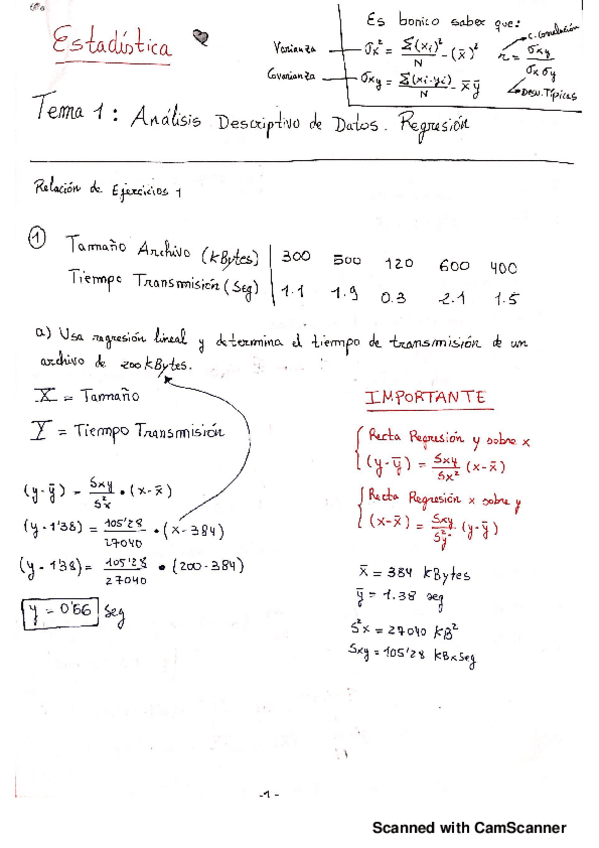 Estadística
Es bonico saber que:
Varianza σx² = Σ(xi)²/N - (x̄)²
Covarianza σxy = Σ(xi·yi)/N - x̄ȳ
r = σxy/σxσy
C. Correlación
Desv. Típicas
Tema 1: Análisis Descriptivo de Datos. Regresión
Relación de Ejercicios 1
① Tamaño Archivo (kBytes) | 300 500 120 600 400
Tiempo Transmisión (Seg) | 1.1 1.9 0.3 2.1 1.5
a) Usa regresión lineal y determina el tiempo de transmisión de un
archivo de 200 kBytes.
X = Tamaño
Y = Tiempo Transmisión
(y-ȳ) = Sxy/S²x · (x-x̄)
(y-1'38) = 105'28/27040 · (x-384)
(y-1'38) = 105'28/27040 · (200-384)
y = 0'66 Seg
IMPORTANTE
Recta Regresión y sobre x
(y-ȳ) = Sxy/Sx² (x-x̄)
Recta Regresión x sobre y
(x-x̄) = Sxy/S²y · (y-ȳ)
x̄ = 384 kBytes
ȳ = 1.38 seg
S²x = 27040 kB²
Sxy = 105'28 kBxseg
-1-
Scanned with CamScanner